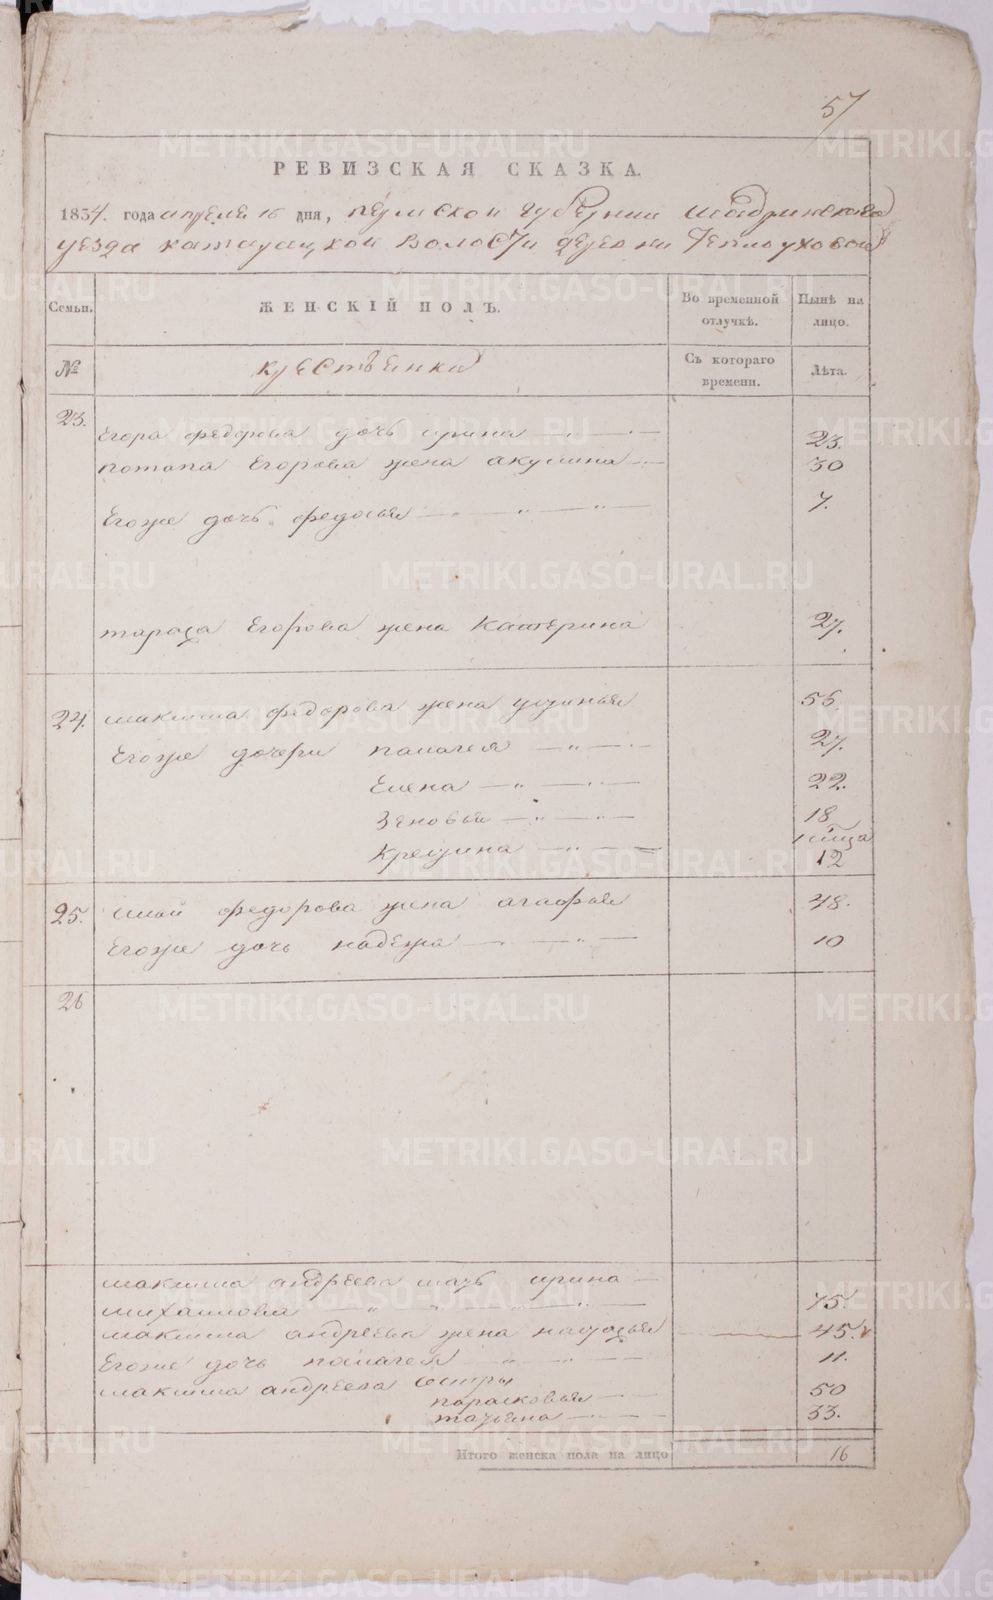 57
РЕВИЗСКАЯ СКАЗКА.
1834. года апреля 16 дня, пермской губернии шадринскаго
уезда катайской волости деревни Теплоуховой
Семьи.
ЖЕНСКІЙ ПОЛЪ.
Во временной отлучкѣ.
Нынѣ на лицо.
№
крестьянки
Съ котораго времени.
Лѣта.
23.
Егора федорова дочь ирина 23.
потапа Егорова жена акулина 30
Егоже дочь федосья 7.
тараса Егорова жена Катерина 27.
24. максима федорова жена устинья 56
Егоже дочери палагея 27.
Елена 22.
Зеновья 18
12
25. федорова жена агафья 48.
Егоже дочь надежа 10
26
максима андреева мать ирина
михаилова 75.
максима андреева жена наталья 45.
Егоже дочь палагея 11.
максима андреева сестры
парасковья 50
татьяна 33.
Итого женска пола на лицо 16
METRIKI.GASO-URAL.RU